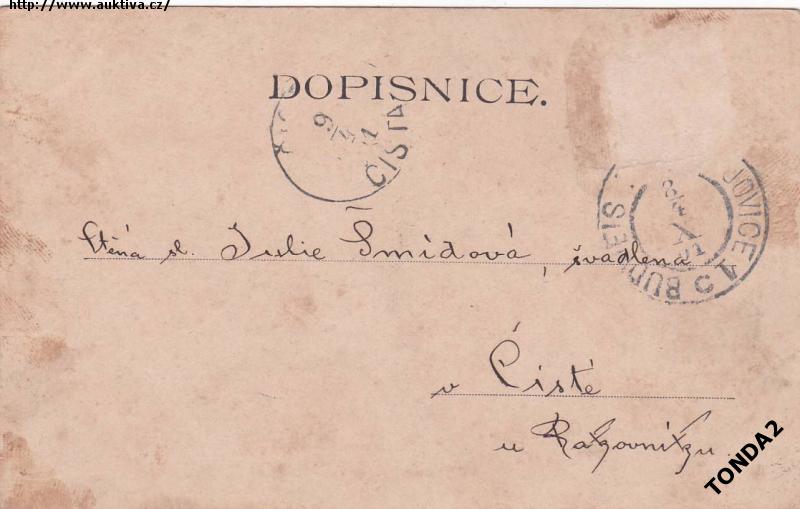 http://www.auktiva.cz/
DOPISNICE.
ČISTÁ
9/4
JOVICE 1
BUD EIS
8/4
C
Ctěná sl. Julie Šmidová, švadlena
v Čisté
u Rakovníku.
TONDA2